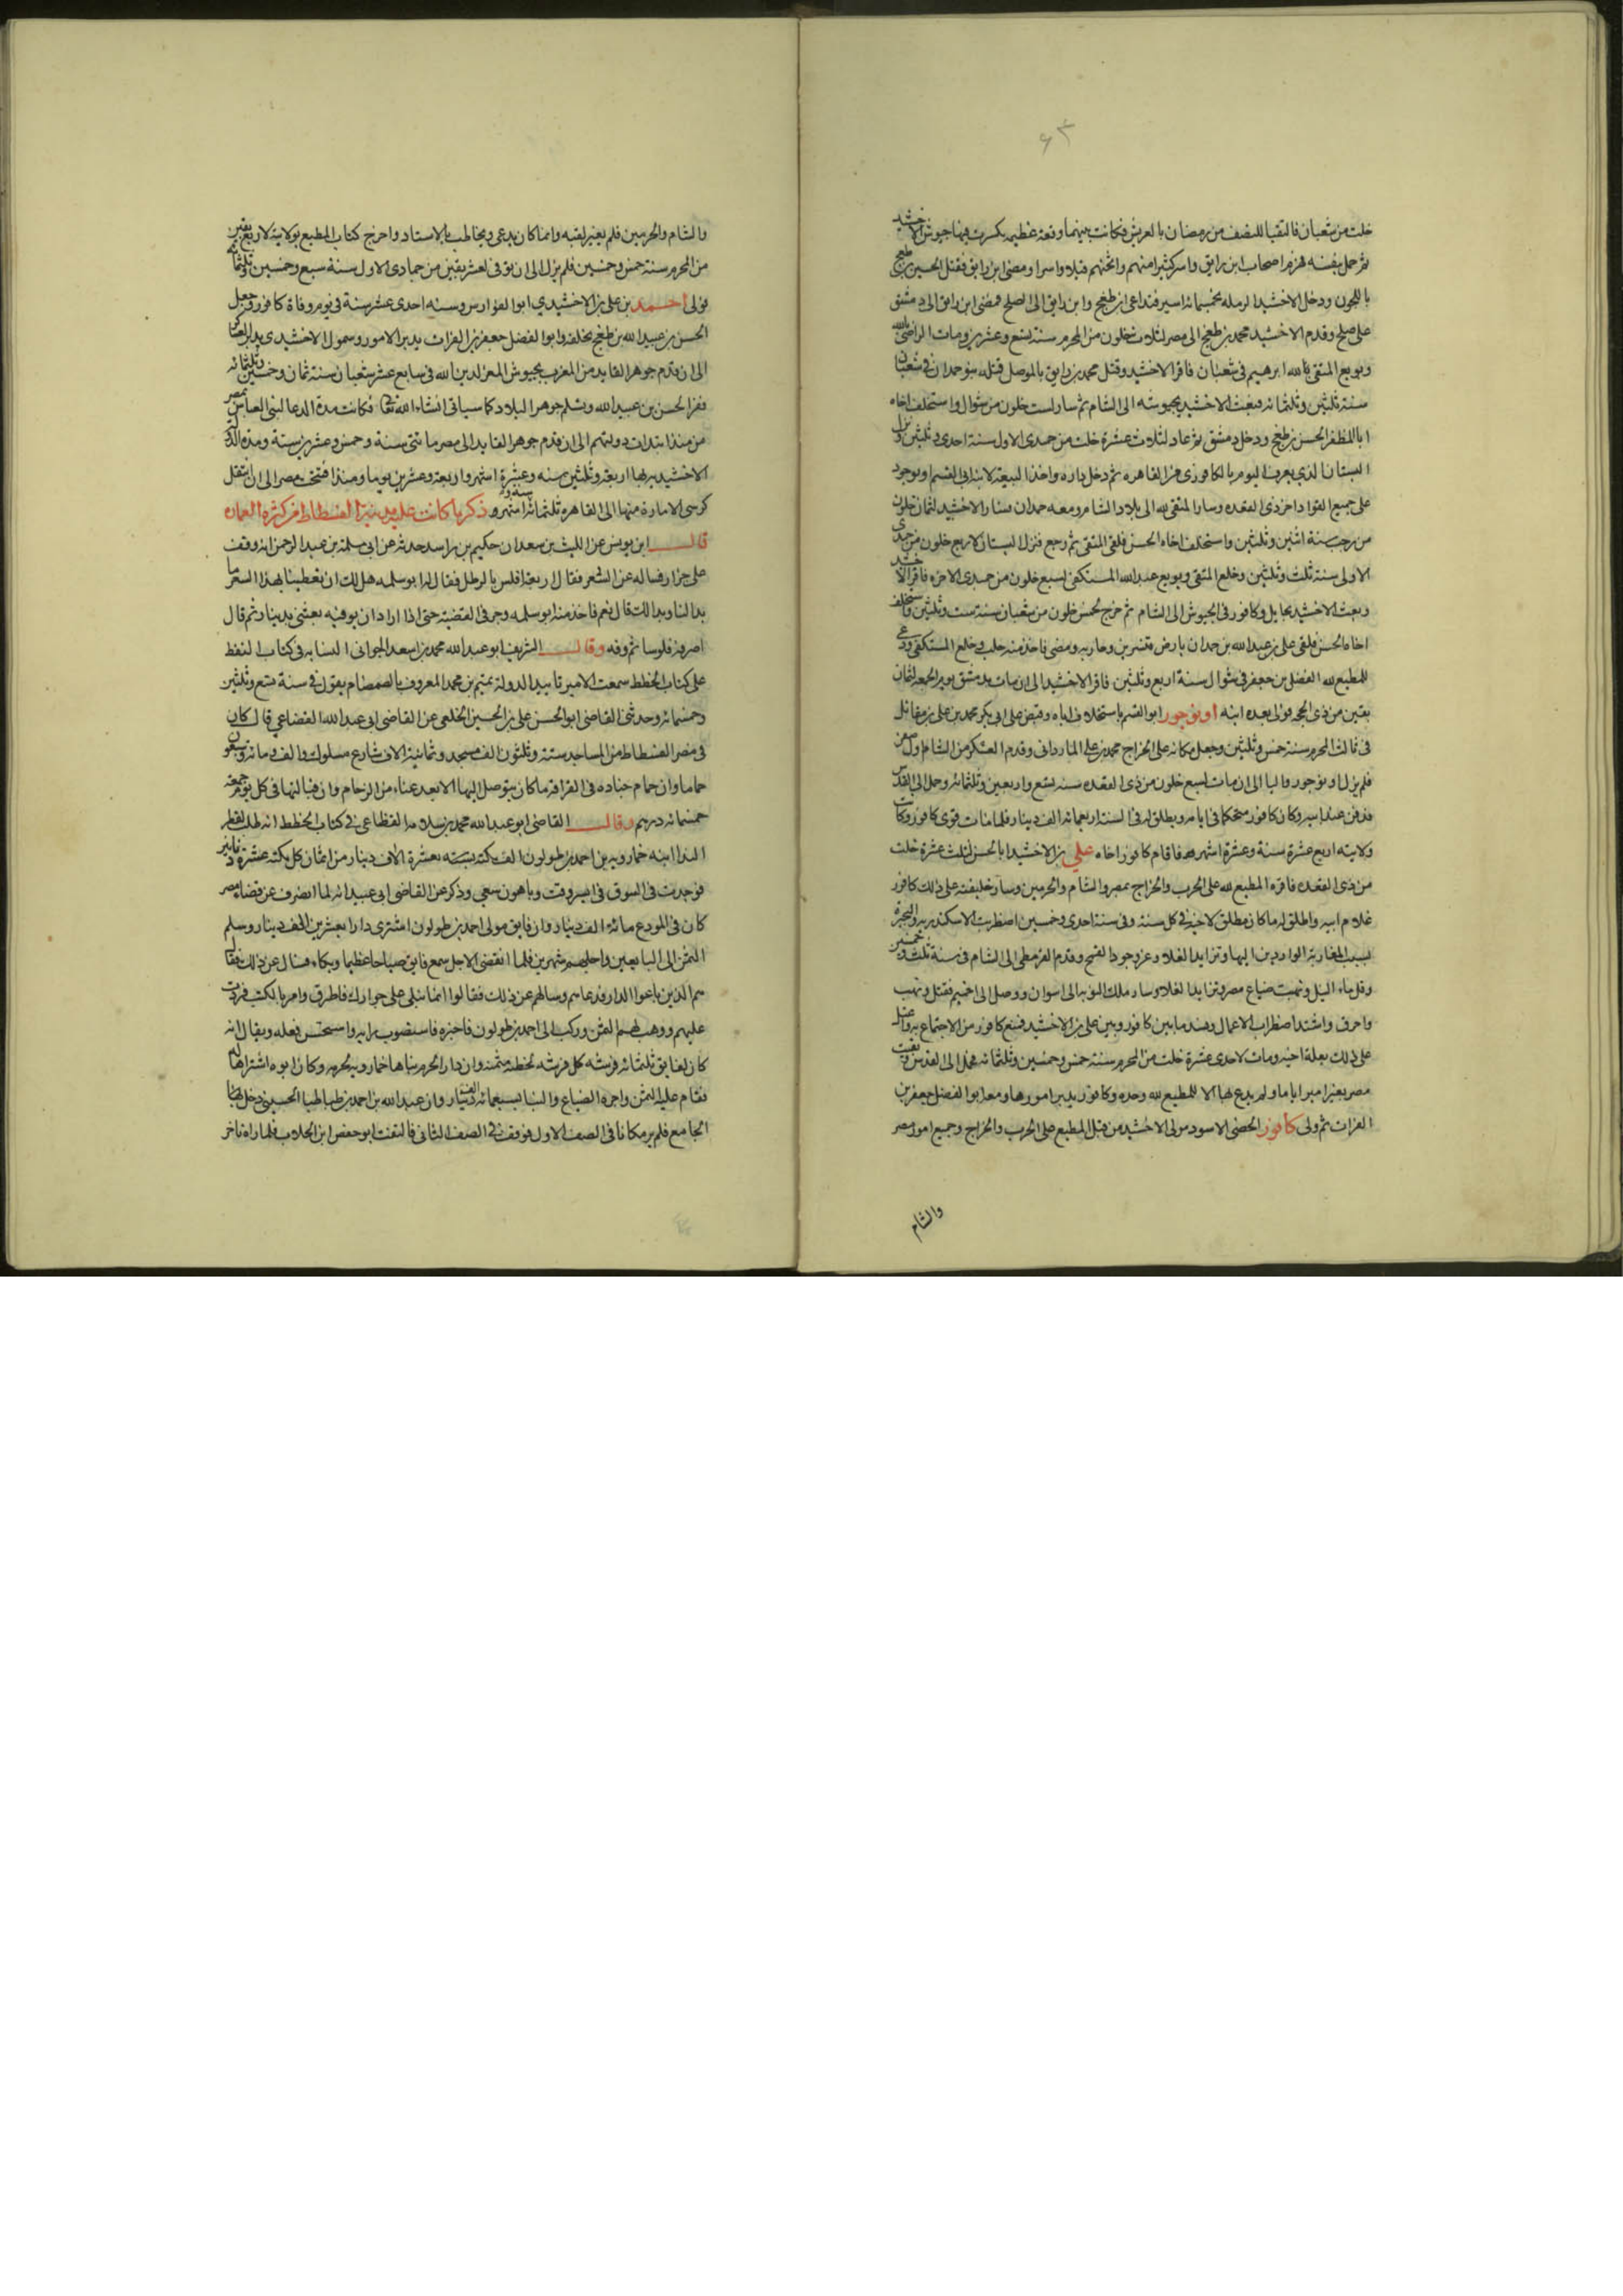 ٤٣
خلت من شعبان فالتقيا للنصف من رمضان بالعريش فكانت بينهما وقعة عظيمة كسرت فيها جيوش الاخشيد
ثم حمل بنفسه فهزم اصحاب ابن رايق واسر كثيرا منهم واثخنهم قتلا واسرا ومضى ابن رايق فقتل الحسين بن طغج
باللجون ودخل الاخشيد الرملة بخمسمائه اسير فتداعى ابن طغج وابن رايق الى الصلح فمضى ابن رايق الى دمشق
على صلح وقدم الاخشيد محمد بن طغج الى مصر لثلاث خلون من المحرم سنة تسع وعشرين ومات الراضى بالله
وبويع المتقى بالله ابرهيم فى شعبان فاقر الاخشيد وقتل محمد بن رايق بالموصل قتله بنو حمدان فى شعبان
سنة ثلثين وثلثمائه فبعث الاخشيد بجيوشه الى الشام ثم سار لست خلون من شوال واستخلف اخاه
ابا المظفر الحسن بن طغج ودخل دمشق ثم عاد لثلاث عشرة خلت من جمدى الاول سنة احدى وثلثين ونزل
البستان الذى يعرف اليوم بالكافورى من القاهره ثم دخل داره واخذ البيعة لابنه ابى القسم اونوجور
على جميع القواد اخر ذى القعده وسار المتقى لله الى بلاد الشام ومعه بنو حمدان فسار الاخشيد لثمان خلون
من رجب سنة اثنين وثلثين واستخلف اخاه الحسن فلقى المتقى ثم رجع فنزل البستان لاربع خلون من جمدى
الاولى سنة ثلث وثلثين وخلع المتقى وبويع عبد الله المستكفى لسبع خلون من جمدى الاخره فاقر الاخشيد
وبعث الاخشيد بحايل وكافور فى الجيوش الى الشام ثم خرج لخمس خلون من شعبان سنة ست وثلثين واستخلف
اخاه الحسن فلقى على بن عبد الله بن حمدان بارض قنسرين وحاربه ومضى فاخذ منه حلب وخلع المستكفى ودعى
للمطيع لله الفضل بن جعفر فى شوال سنة اربع وثلثين فاقر الاخشيد الى ان مات بدمشق يوم الجمعه لثمان
بقين من ذى الحجه فولى بعده ابنه اونوجور ابو القسم باستخلاف اباه وقبض على ابى بكر محمد بن على بن مقاتل
فى ثالث المحرم سنة خمس وثلثين وجعل مكانه على الخراج محمد بن على الماردانى وقدم العسكر من الشام اول صفر
فلم يزل اونوجور واليا الى ان مات لسبع خلون من ذى القعده سنه تسع واربعين وثلثمائه وحمل الى القدس
فدفن عند ابيه وكان كافور متحكما فى ايامه ويطلق له فى السنة اربعمائه الف دينار فلما مات قوى كافور وكانت
ولايته اربع عشرة سنة وعشرة اشهر فاقام كافور اخاه على بن الاخشيد ابا الحسن لثلث عشرة خلت
من ذى القعده فاقره المطيع لله على الحرب والخراج بمصر والشام والحرمين وصار خليفته على ذلك كافور
غلام ابيه واطلق له ما كان يطلق لاخيه فى كل سنة وفى سنة احدى وخمسين اضطربت الاسكندريه والبحيرة
بسبب المغاربة الواردين اليها وتزايد الغلاء وعز وجود القمح وقدم القرمطى الى الشام فى سنة ثلث وخمسين
وقل ماء النيل ونهبت ضياع مصر وتزايد الغلاء وسار ملك النوبه الى اسوان ووصل الى اخميم فقتل ونهب
واحرق واشتد اضطراب الاعمال وفسد ما بين كافور وبين على بن الاخشيد فمنع كافور من الاجتماع به واعتل
على ذلك بعلة اخيه ومات لاحدى عشرة خلت من المحرم سنة خمس وخمسين وثلثمائه فحمل الى القدس وبقيت
مصر بغير امير اياما ولم يدع بها الا للمطيع لله وحده وكافور يدبر امورها ومعه ابو الفضل جعفر بن
الفرات ثم ولى كافور الخصى الاسود مولى الاخشيد من قبل المطيع على الحرب والخراج وجميع امور مصر
والشام
والشام والحرمين فلم يغير لقبه وانما كان يدعى ويخاطب بالاستاد واخرج كتاب المطيع بولايته لاربع بقين
من المحرم سنة خمس وخمسين فلم يزل الى ان توفى لعشر بقين من جمادى الاول سنة سبع وخمسين وثلثمائة
فولى احمد بن على بن الاخشيدى ابو الفوارس وسنه احدى عشر سنة فى يوم وفاة كافور وجعل
الحسن بن عبيد الله بن طغج يخلفه وابو الفضل جعفر بن الفرات يدبر الامور وسمول الاخشيدى يدبر العساكر
الى ان قدم جوهر القايد من المغرب بجيوش المعز لدين الله فى سابع عشر شعبان سنة ثمان وخمسين وثلثمائه
ففر الحسن بن عبيد الله وتسلم جوهر البلاد كما سياتى ان شاء الله تعالى فكانت مدة الدعا لبنى العباس بمصر
من منذ ابتدات دولتهم الى ان قدم جوهر القايد الى مصر مائتى سنة وخمس وعشرين سنة ومدة الدولة
الاخشيديه بها اربعة وثلثين سنه وعشرة اشهر واربعة وعشرين يوما ومنذ افتتحت مصر الى ان انتقل
كرسى الامارة منها الى القاهرة ثلثمائة سنه و اشهر وذكر ما كانت عليه مدينة الفسطاط من كثرة العماره
قال ابن يونس عن الليث بن سعد ان حكيم بن راسد حدثه عن ابى سلمة بن عبد الرحمن انه وقف
على جزار فساله عن السعر فقال اربعة افلس بالرطل فقال له ابو سلمه هل لك ان تعطينا بهذا السعر ما
بدا لنا وبدا لك قال نعم فاخذ منه ابو سلمه ومر فى القصبة حتى اذا اراد ان يوفيه بعثنى بدينار ثم قال
اصرفه فلوسا ثم وفه وقال الشريف ابو عبد الله محمد بن اسعد الجوانى النسابه فى كتاب النقط
على كتاب الخطط سمعت الامير تاييد الدولة تميم بن محمد المعروف بالصمصام يقول فى سنة تسع وثلثين
وخمسمائه وحدثنى القاضى ابو الحسن على بن الحسين الخلعى عن القاضى ابى عبد الله القضاعى قال كان
فى مصر الفسطاط من المساجد ستة وثلثون الف مسجد وثمانية الاف شارع مسلوك والف ومائة وسبعون
حماما وان حمام جناده فى القرافة ما كان يتوصل اليها الا بعد عناء من الزحام وان قبالتها فى كل يوم جمعه
خمسمائه درهم وقال القاضى ابو عبد الله محمد بن سلامه القظاعى فى كتاب الخطط انه طلب لقطر
الندا ابنه خمارويه بن احمد بن طولون الف تكه بعشرة الاف دينار من اثمان كل تكه عشرة دنانير
فوجدت فى السوق فى ايسر وقت وباهون سعى وذكر عن القاضى ابى عبيد انه لما انصرف عن قضاء مصر
كان فى المودع مائة الف دينار وان فايق مولى احمد بن طولون اشترى دارا بعشرين الف دينار وسلم
الثمن الى البايعين واجلهم شهرين فلما انقضى الاجل سمع فايق صياحا عظيما وبكاء فسال عن ذلك فقيل
هم الذين باعوا الدار فدعاهم وسالهم عن ذلك فقالوا انما نبكى على جوارك فاطرق وامر بالكتب فردت
عليهم ووهب لهم الثمن وركب الى احمد بن طولون فاخبره فاستصوب رايه واستحسن فعله ويقال انه
كان لفايق ثلثمائه فرشه كل فرشه لحظية مثمنه وان دار الحرم بناها خمارويه لحرمه وكان ابوه اشتراها له
فقام عليه الثمن واجرة الصناع والبنا بسبعمائه الف دينار وان عبد الله بن احمد بن طباطبا الحسينى دخل
الجامع فلم ير مكانا فى الصف الاول فوقف فى الصف الثانى فالتفت ابو حفص ابن الجلاب فلما راه تاخر